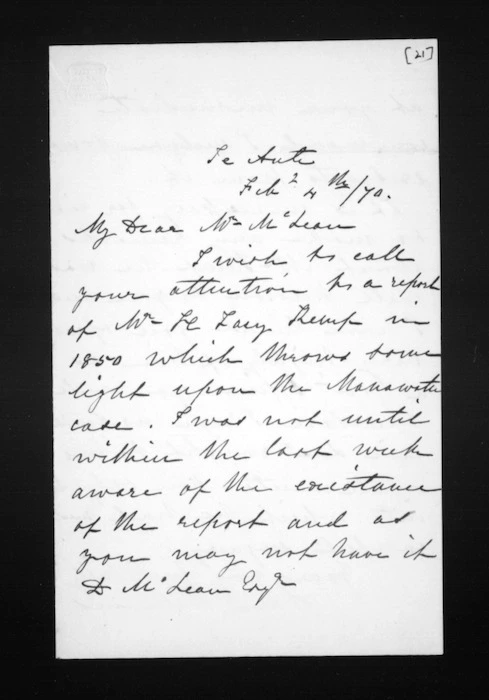 [21]
Te Aute
Feb 4th/70.
My Dear Mr McLean
I wish to call
your attention to a report
of Mr H Tacy Kemp in
1850 which throws some
light upon the Manawatu
case. I was not until
within the last week
aware of the existance
of the report and as
you may not have it
D McLean Esqr